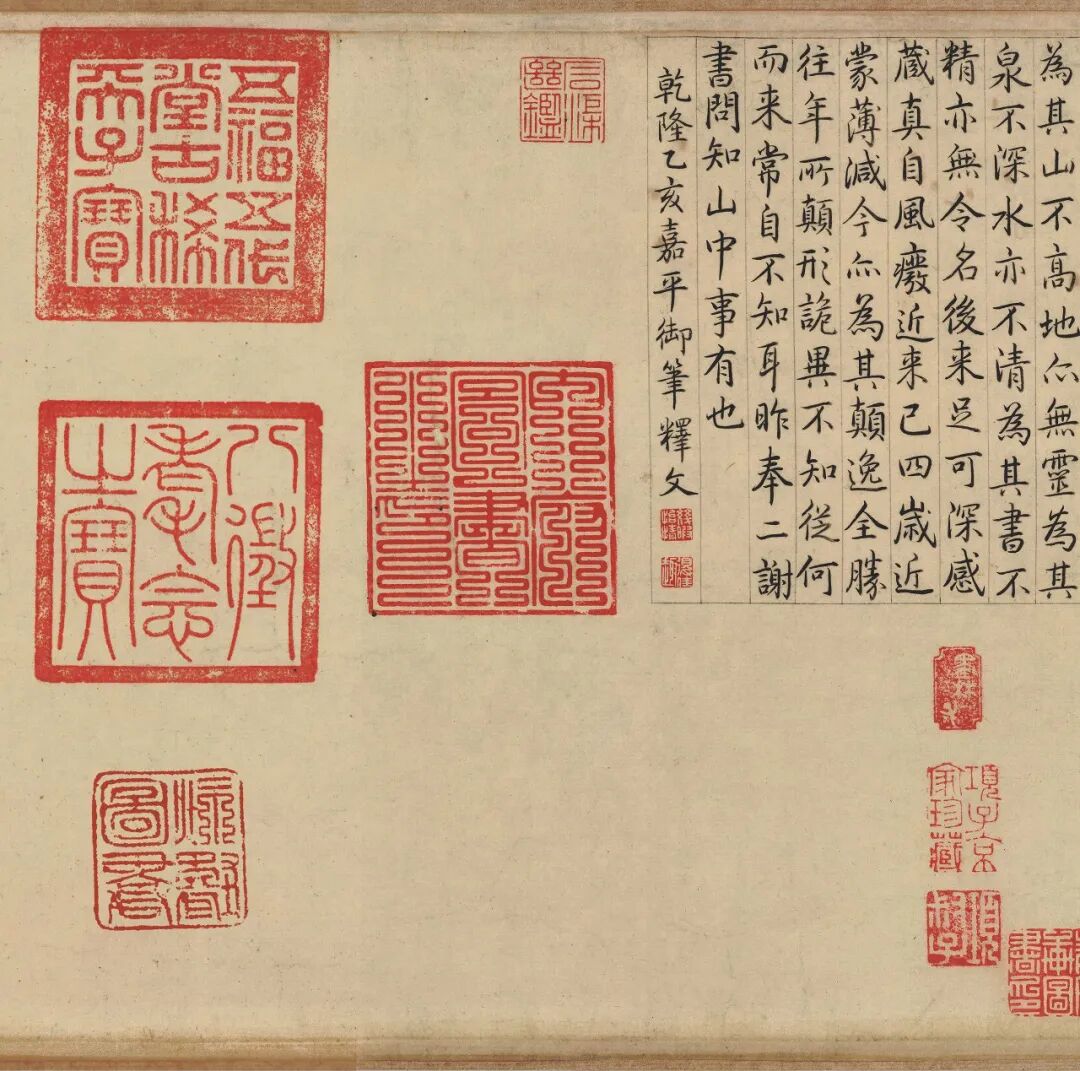 為其山不高地亦無靈為其
泉不深水亦不清為其書不
精亦無令名後来足可深感
藏真自風癈近来已四歲近
蒙薄減今亦為其顛逸全勝
往年所顛形詭異不知從何
而来常自不知耳昨奉二謝
書問知山中事有也
乾隆乙亥嘉平御筆釋文
項子京家珍藏
項叔子
五福五代堂古稀天子寶
八徵耄念之寶